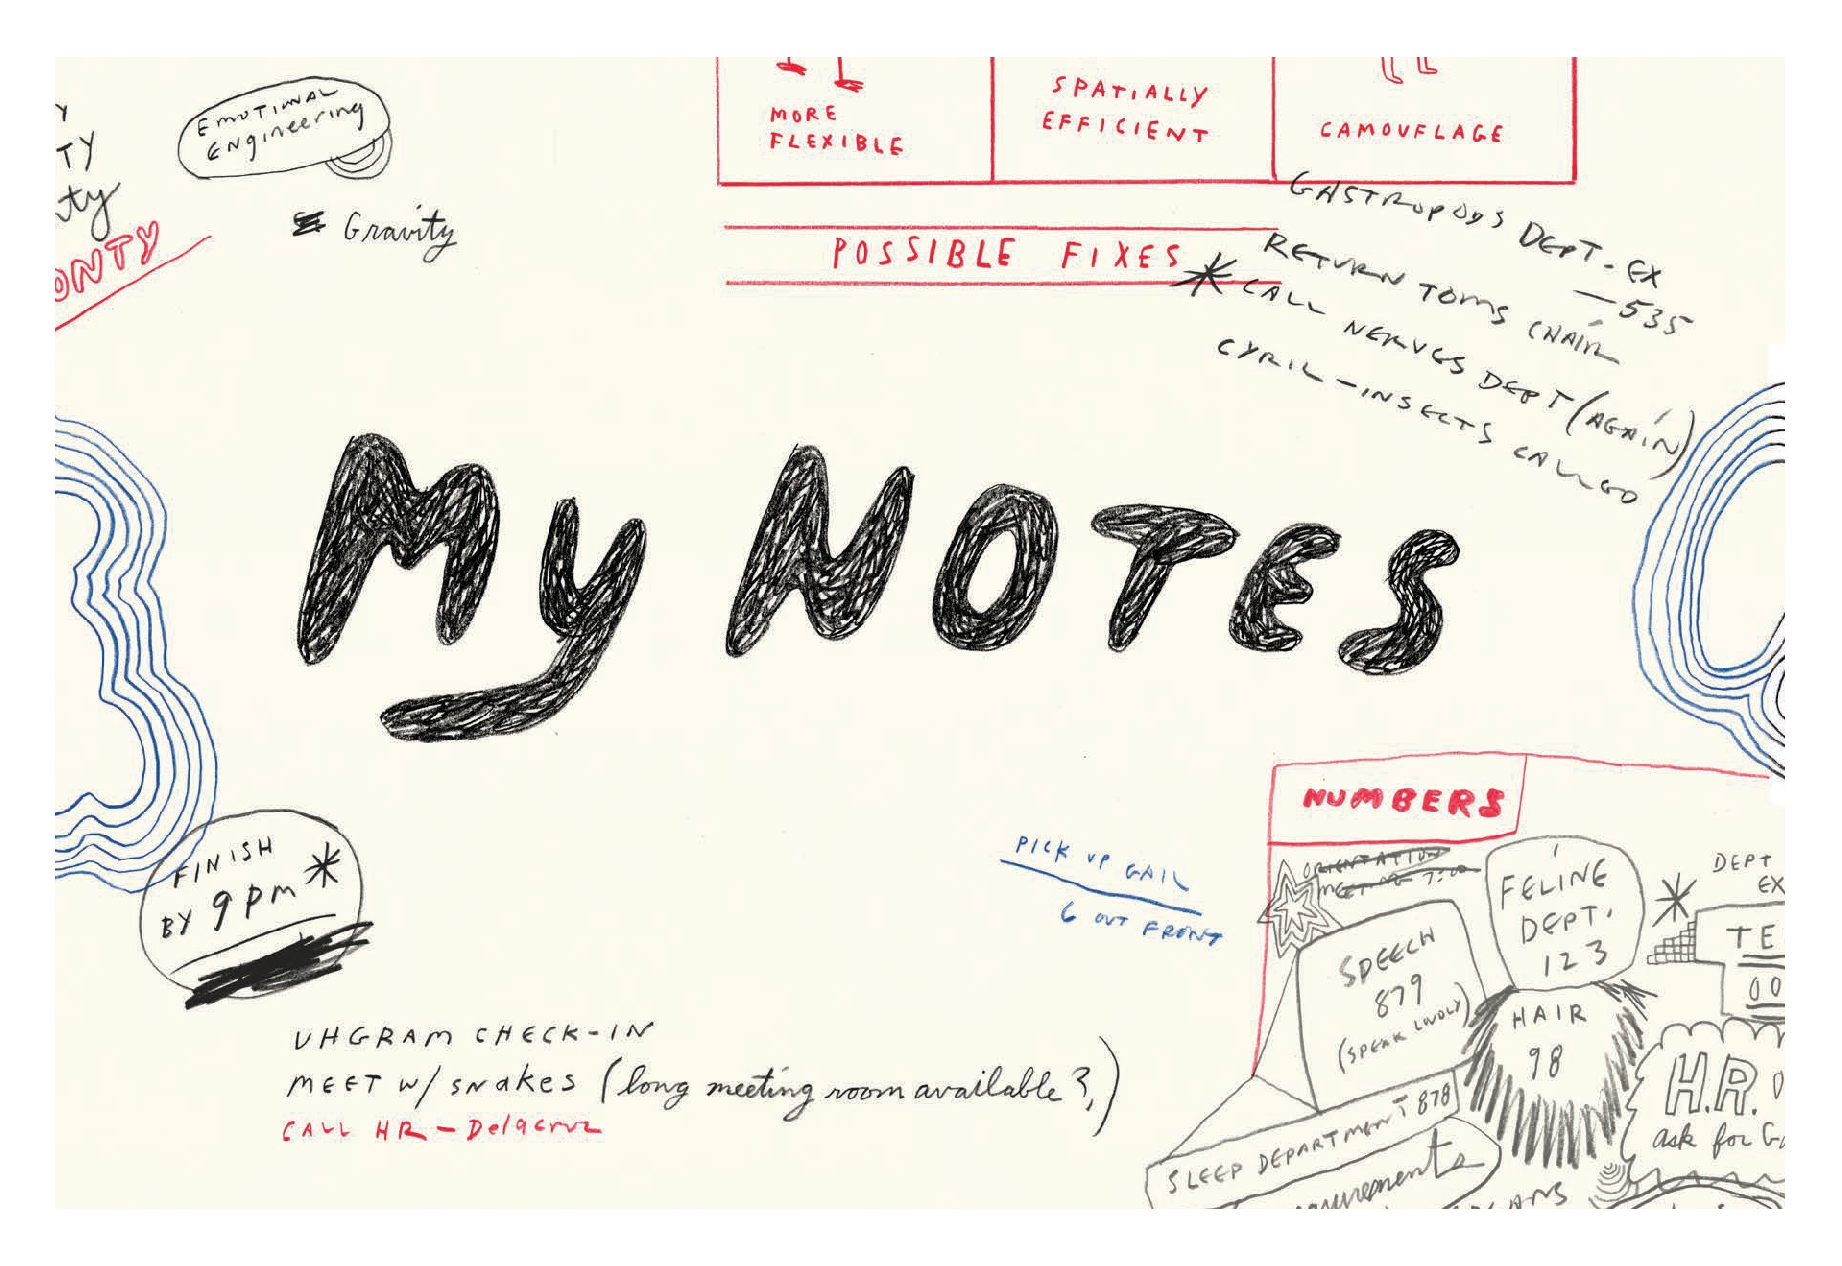 TY
ty
ONTY
EMOTIONAL
Engineering
Gravity
MORE
FLEXIBLE
SPATIALLY
EFFICIENT
CAMOUFLAGE
POSSIBLE FIXES
GASTROPODS DEPT. EX
—535
RETURN TOMS CHAIR
* CALL NERVES DEPT (AGAIN)
CYRIL-INSECTS CALLED
My NOTES
FINISH
BY 9pm *
PICK UP GAIL
6 OUT FRONT
NUMBERS
ORIENTATION
MEET
SPEECH
879
(SPEAK
FELINE
DEPT.
123
HAIR
98
* DEPT
EX
TE
00
H.R.
ask for Ga
SLEEP DEPARTMENT 878
urements
ANS
UHGRAM CHECK-IN
MEET W/ SNAKES (long meeting room available?)
CALL HR-Delacruz